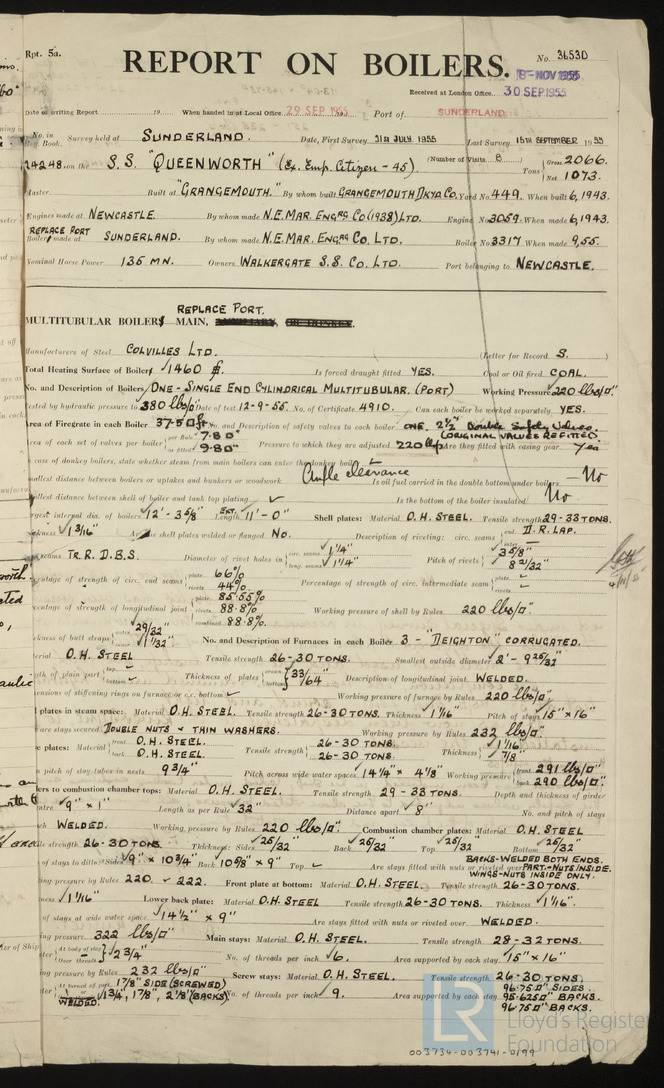 Rpt. 5a.
REPORT ON BOILERS.
No. 36530
8-NOV 1955
Received at London Office 30 SEP 1955
Date of writing Report 19 When handed in at Local Office 29 SEP 1955 Port of SUNDERLAND
No. in Book. Survey held at SUNDERLAND. Date, First Survey 21st JULY 1955 Last Survey 15TH SEPTEMBER 1955
24248 on the S.S. "QUEENWORTH" (Ex. Emp. Citizen - 45) (Number of Visits 8) Tons Gross 2066. Net 1073.
Master Built at "GRANGEMOUTH." By whom built GRANGEMOUTH DKYD CO. Yard No. 449. When built 6,1943.
Engines made at NEWCASTLE. By whom made N.E. MAR. ENGRG CO (1938) LTD. Engine No. 3059. When made 6,1943.
REPLACE PORT
Boiler made at SUNDERLAND. By whom made N.E. MAR. ENGRG. CO. LTD. Boiler No. 3317. When made 9,55.
Nominal Horse Power 135 MN. Owners WALKERGATE S.S. CO. LTD. Port belonging to NEWCASTLE.
REPLACE PORT.
MULTITUBULAR BOILERS MAIN,
Manufacturers of Steel COLVILLES LTD. (Letter for Record S.)
Total Heating Surface of Boiler 1460 Is forced draught fitted YES. Coal or Oil fired COAL.
No. and Description of Boilers ONE - SINGLE END CYLINDRICAL MULTITUBULAR. (PORT) Working Pressure 220 lbs/□".
Tested by hydraulic pressure to 380 lbs/□" Date of test 12-9-55. No. of Certificate 4910. Can each boiler be worked separately YES.
Area of Firegrate in each Boiler 37.5 □ft. No. and Description of safety valves to each boiler ONE 2½" Double Safety Valves (ORIGINAL VALVES REFITTED
Area of each set of valves per boiler per Rule 7.8□" as fitted 9.8□" Pressure to which they are adjusted 220 lbs Are they fitted with easing gear Yes
case of donkey boilers, state whether steam from main boilers can enter the donkey boiler
Smallest distance between boilers or uptakes and bunkers or woodwork Ample clearance Is oil fuel carried in the double bottom under boilers - No
smallest distance between shell of boiler and tank top plating Is the bottom of the boiler insulated No
largest internal dia. of boilers 12' - 3⅝" EXT. Length 11' - 0" Shell plates: Material O.H. STEEL. Tensile strength 29-33 TONS.
Thickness 1 3/16" Are the shell plates welded or flanged No. Description of riveting: circ. seams end D.R. LAP. inter.
seams TR. R. D.B.S. Diameter of rivet holes in circ. seams 1¼" long. seams 1¼" Pitch of rivets 3⅝" 8 21/32"
percentage of strength of circ. end seams plate 66% rivets 44% Percentage of strength of circ. intermediate seam plate rivets
percentage of strength of longitudinal joint plate 85.55% rivets 88.8% combined 88.8% Working pressure of shell by Rules 220 lbs/□"
thickness of butt straps outer 29/32" inner 1 1/32" No. and Description of Furnaces in each Boiler 3 - "DEIGHTON" CORRUGATED.
Material O.H. STEEL Tensile strength 26-30 TONS. Smallest outside diameter 2' - 9 25/32"
length of plain part top bottom Thickness of plates crown bottom 33/64" Description of longitudinal joint WELDED.
Dimensions of stiffening rings on furnace or c.c. bottom Working pressure of furnace by Rules 220 lbs/□"
plates in steam space: Material O.H. STEEL. Tensile strength 26-30 TONS. Thickness 1 1/16" Pitch of stays 15" x 16"
are stays secured DOUBLE NUTS & THIN WASHERS. Working pressure by Rules 232 lbs/□"
plates: Material front O.H. STEEL. back O.H. STEEL. Tensile strength 26-30 TONS. 26-30 TONS. Thickness 1 1/16" 7/8"
pitch of stay tubes in nests 9¾" Pitch across wide water spaces 14¼" x 4⅛" Working pressure front 291 lbs/□" back 290 lbs/□"
girders to combustion chamber tops: Material O.H. STEEL. Tensile strength 29-33 TONS. Depth and thickness of girder
centre 9" x 1" Length as per Rule 32" Distance apart 8" No. and pitch of stays
each WELDED. Working pressure by Rules 220 lbs/□". Combustion chamber plates: Material O.H. STEEL
Tensile strength 26-30 TONS. Thickness: Sides 25/32 Back 25/32 Top 25/32 Bottom 25/32
of stays to ditto: Sides 9" x 10¾" Back 10⅝" x 9" Top Are stays fitted with nuts or riveted over BACKS-WELDED BOTH ENDS. PART-NUTS INSIDE. WINGS-NUTS INSIDE ONLY.
Working pressure by Rules 220 222. Front plate at bottom: Material O.H. STEEL. Tensile strength 26-30 TONS.
Thickness 1 1/16" Lower back plate: Material O.H. STEEL Tensile strength 26-30 TONS. Thickness 1 1/16".
of stays at wide water space 14½" x 9" Are stays fitted with nuts or riveted over WELDED.
Working pressure 322 lbs/□" Main stays: Material O.H. STEEL. Tensile strength 28-32 TONS.
At body of stay Over threads 2¾" No. of threads per inch 6. Area supported by each stay 15" x 16"
Working pressure by Rules 232 lbs/□" Screw stays: Material O.H. STEEL. Tensile strength 26-30 TONS.
At turned off part 1⅞" SIDE (SCREWED) 1¾", 1⅞", 2⅛" (BACKS) No. of threads per inch 9. Area supported by each stay 96.75□" SIDES. 95.625□" BACKS. 96.75□" BACKS.
WELDED.
003734-003741-0199
LR
Lloyd's Register
Foundation